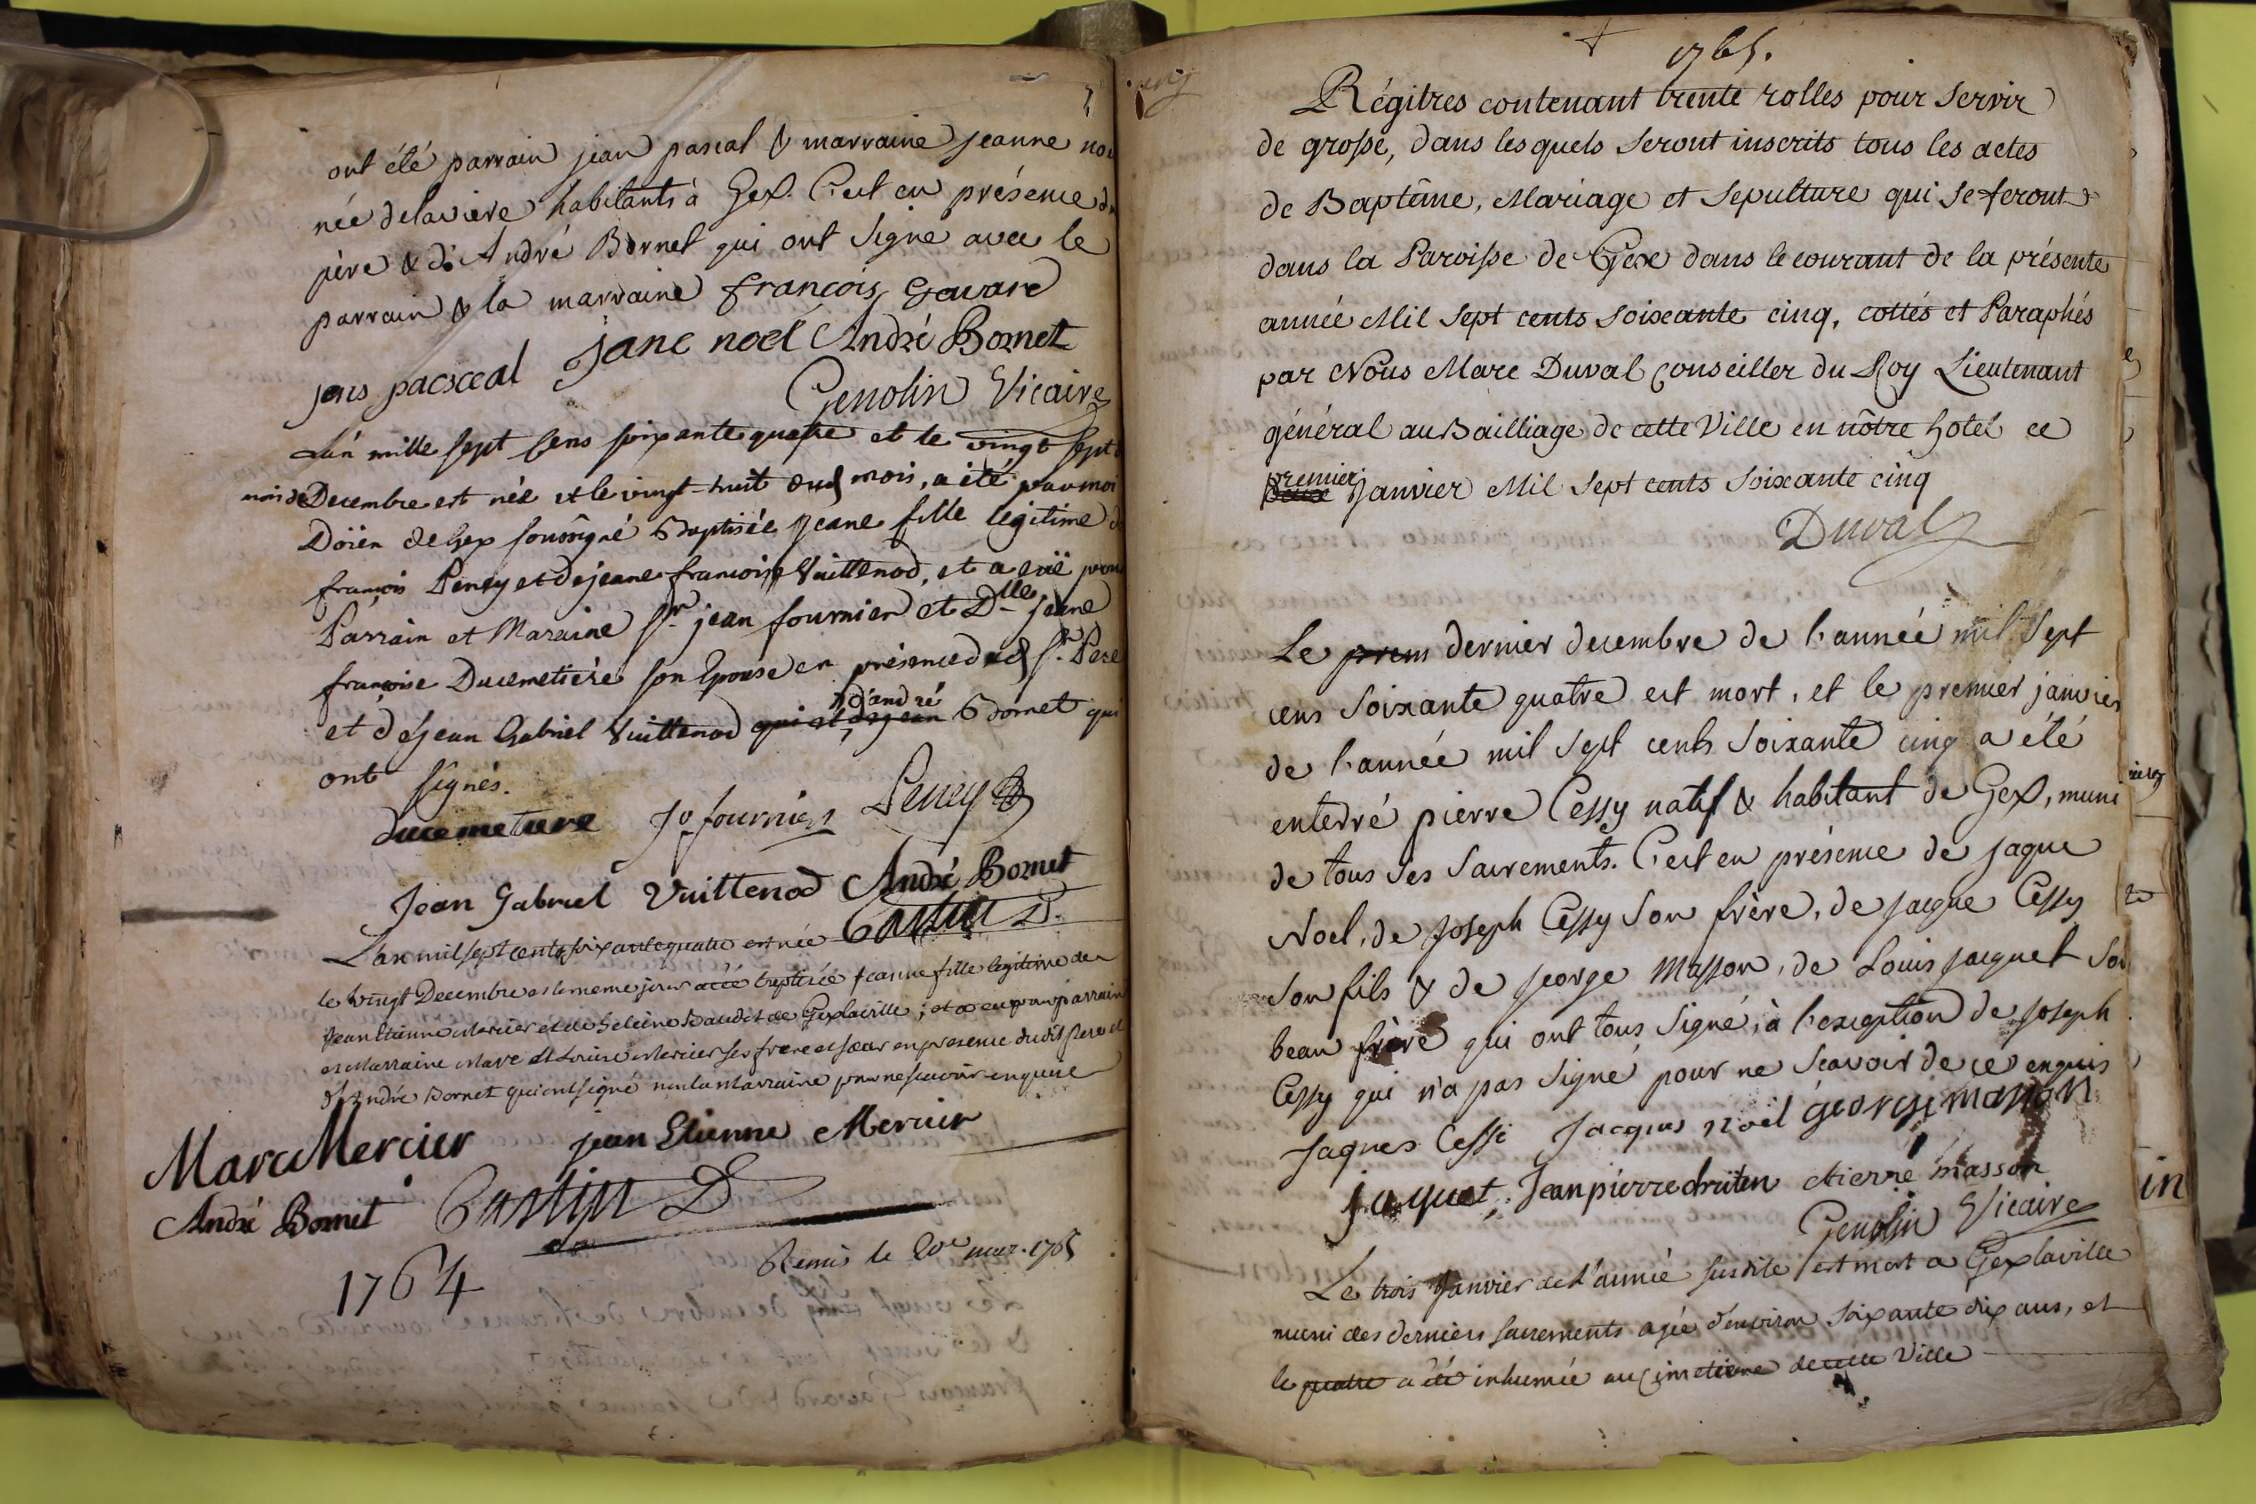 ont été parrain jean pascal & marraine jeanne
née delaviere habitants à Gex. C'est en présence du
père & d'André Bornet qui ont signé avec le
parrain & la marraine françois Gavard
jens pacsceal jane noel André Bornet
Genolin Vicaire
L'an mille sept cens soixante quatre et le vingt sept
mois de Decembre est née et le vingt-huit dud mois, a été par moi
Doïen de Gex soussigné Baptisée Jeane fille legitime
françois Peney et de jeane francoise Vuittenod, et a eüe pour
Parrain et Maraine Sr. jean fournier et Dlle jeane
françoise Ducimetiére son Epouse en présence dud Sr. Pere
et de jean Gabriel Vuittenod & d'andré Bornet qui
ont signés.
ducemetiere Jo fournier Peney
Jean Gabriel Vuittenod André Bornet
Castin D.
L'an mil sept cents soixante quatre est née
le vingt Decembre et le meme jour a été baptisée jeanne fille legitime de
Jean Etienne Mercier et de Helène de Gex la ville; et a eu pour parrain
et Marraine Marc et Louise Mercier ses frere et sœur en presence dudit Pere et
d'André Bornet qui ont signé non la Marraine pour ne scavoir enquise
Marc Mercier jean Etienne Mercier
André Bornet Castin D
Remis le 20e mar. 1765
1764
1765.
Régitres contenant trente rolles pour servir
de grosse, dans lesquels seront inscrits tous les actes
de Baptême, Mariage et Sepulture qui se feront
dans la Paroisse de Gex dans le courant de la présente
année Mil sept cents soixante cinq, cottés et Paraphés
par Nous Marc Duval Conseiller du Roy Lieutenant
général au Bailliage de cette Ville en nôtre hotel ce
premier
Janvier Mil sept cents soixante cinq
Duval
Le prem dernier decembre de l'année mil sept
cens soixante quatre est mort, et le premier janvier
de l'année mil sept cents soixante cinq a été
enterré pierre Cessy natif & habitant de Gex, muni
de tous ses sacrements. C'est en présence de jaque
Noel, de joseph Cessy son frère, de jaque Cessy
son fils & de george Masson, de Louis jacquet son
beau frère qui ont tous signé, à l'exception de joseph
Cessy qui n'a pas signé pour ne sçavoir de ce enquis
Jaques Cessi Jacques noël george masson
jaquet, Jean pierre druiten Pierre masson
Genolin Vicaire
Le trois Janvier de l'année susdite est mort a Gex la ville
muni des derniers sacrements agée d'environ soixante dix ans, et
le quatre a été inhumée au Cimetiere de cette Ville